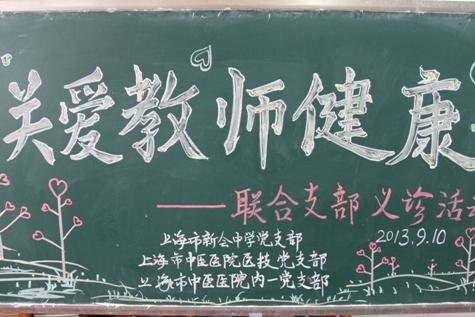 关爱教师健康
——联合支部义诊活
上海市新会中学党支部
2013.9.10
上海市中医医院医技党支部
上海市中医医院内一党支部